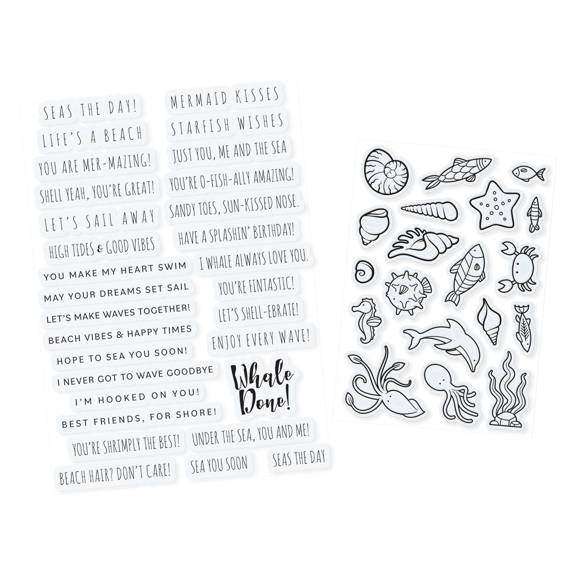 SEAS THE DAY!
MERMAID KISSES
LIFE'S A BEACH
STARFISH WISHES
YOU ARE MER-MAZING!
JUST YOU, ME AND THE SEA
SHELL YEAH, YOU'RE GREAT!
YOU'RE O-FISH-ALLY AMAZING!
LET'S SAIL AWAY
SANDY TOES, SUN-KISSED NOSE.
HIGH TIDES & GOOD VIBES
HAVE A SPLASHIN' BIRTHDAY!
YOU MAKE MY HEART SWIM
I WHALE ALWAYS LOVE YOU.
MAY YOUR DREAMS SET SAIL
YOU'RE FINTASTIC!
LET'S MAKE WAVES TOGETHER!
LET'S SHELL-EBRATE!
BEACH VIBES & HAPPY TIMES
ENJOY EVERY WAVE!
HOPE TO SEA YOU SOON!
I NEVER GOT TO WAVE GOODBYE
I'M HOOKED ON YOU!
BEST FRIENDS, FOR SHORE!
Whale
Done!
YOU'RE SHRIMPLY THE BEST!
UNDER THE SEA, YOU AND ME!
BEACH HAIR? DON'T CARE!
SEA YOU SOON
SEAS THE DAY